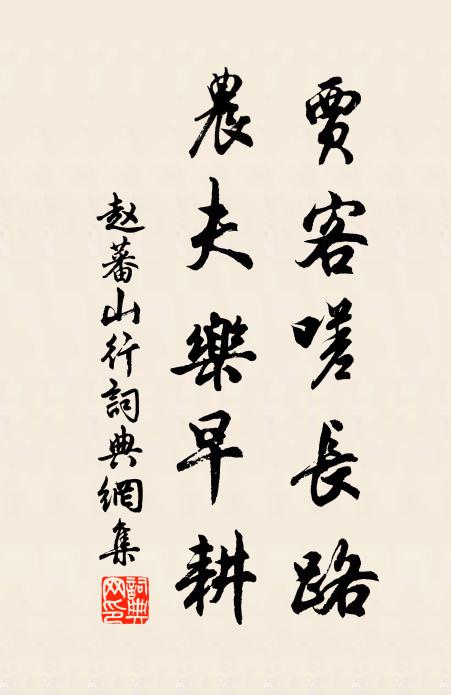 賈客嗟長路
農夫樂早耕
赵蕃山行詞典網集
詞典网印